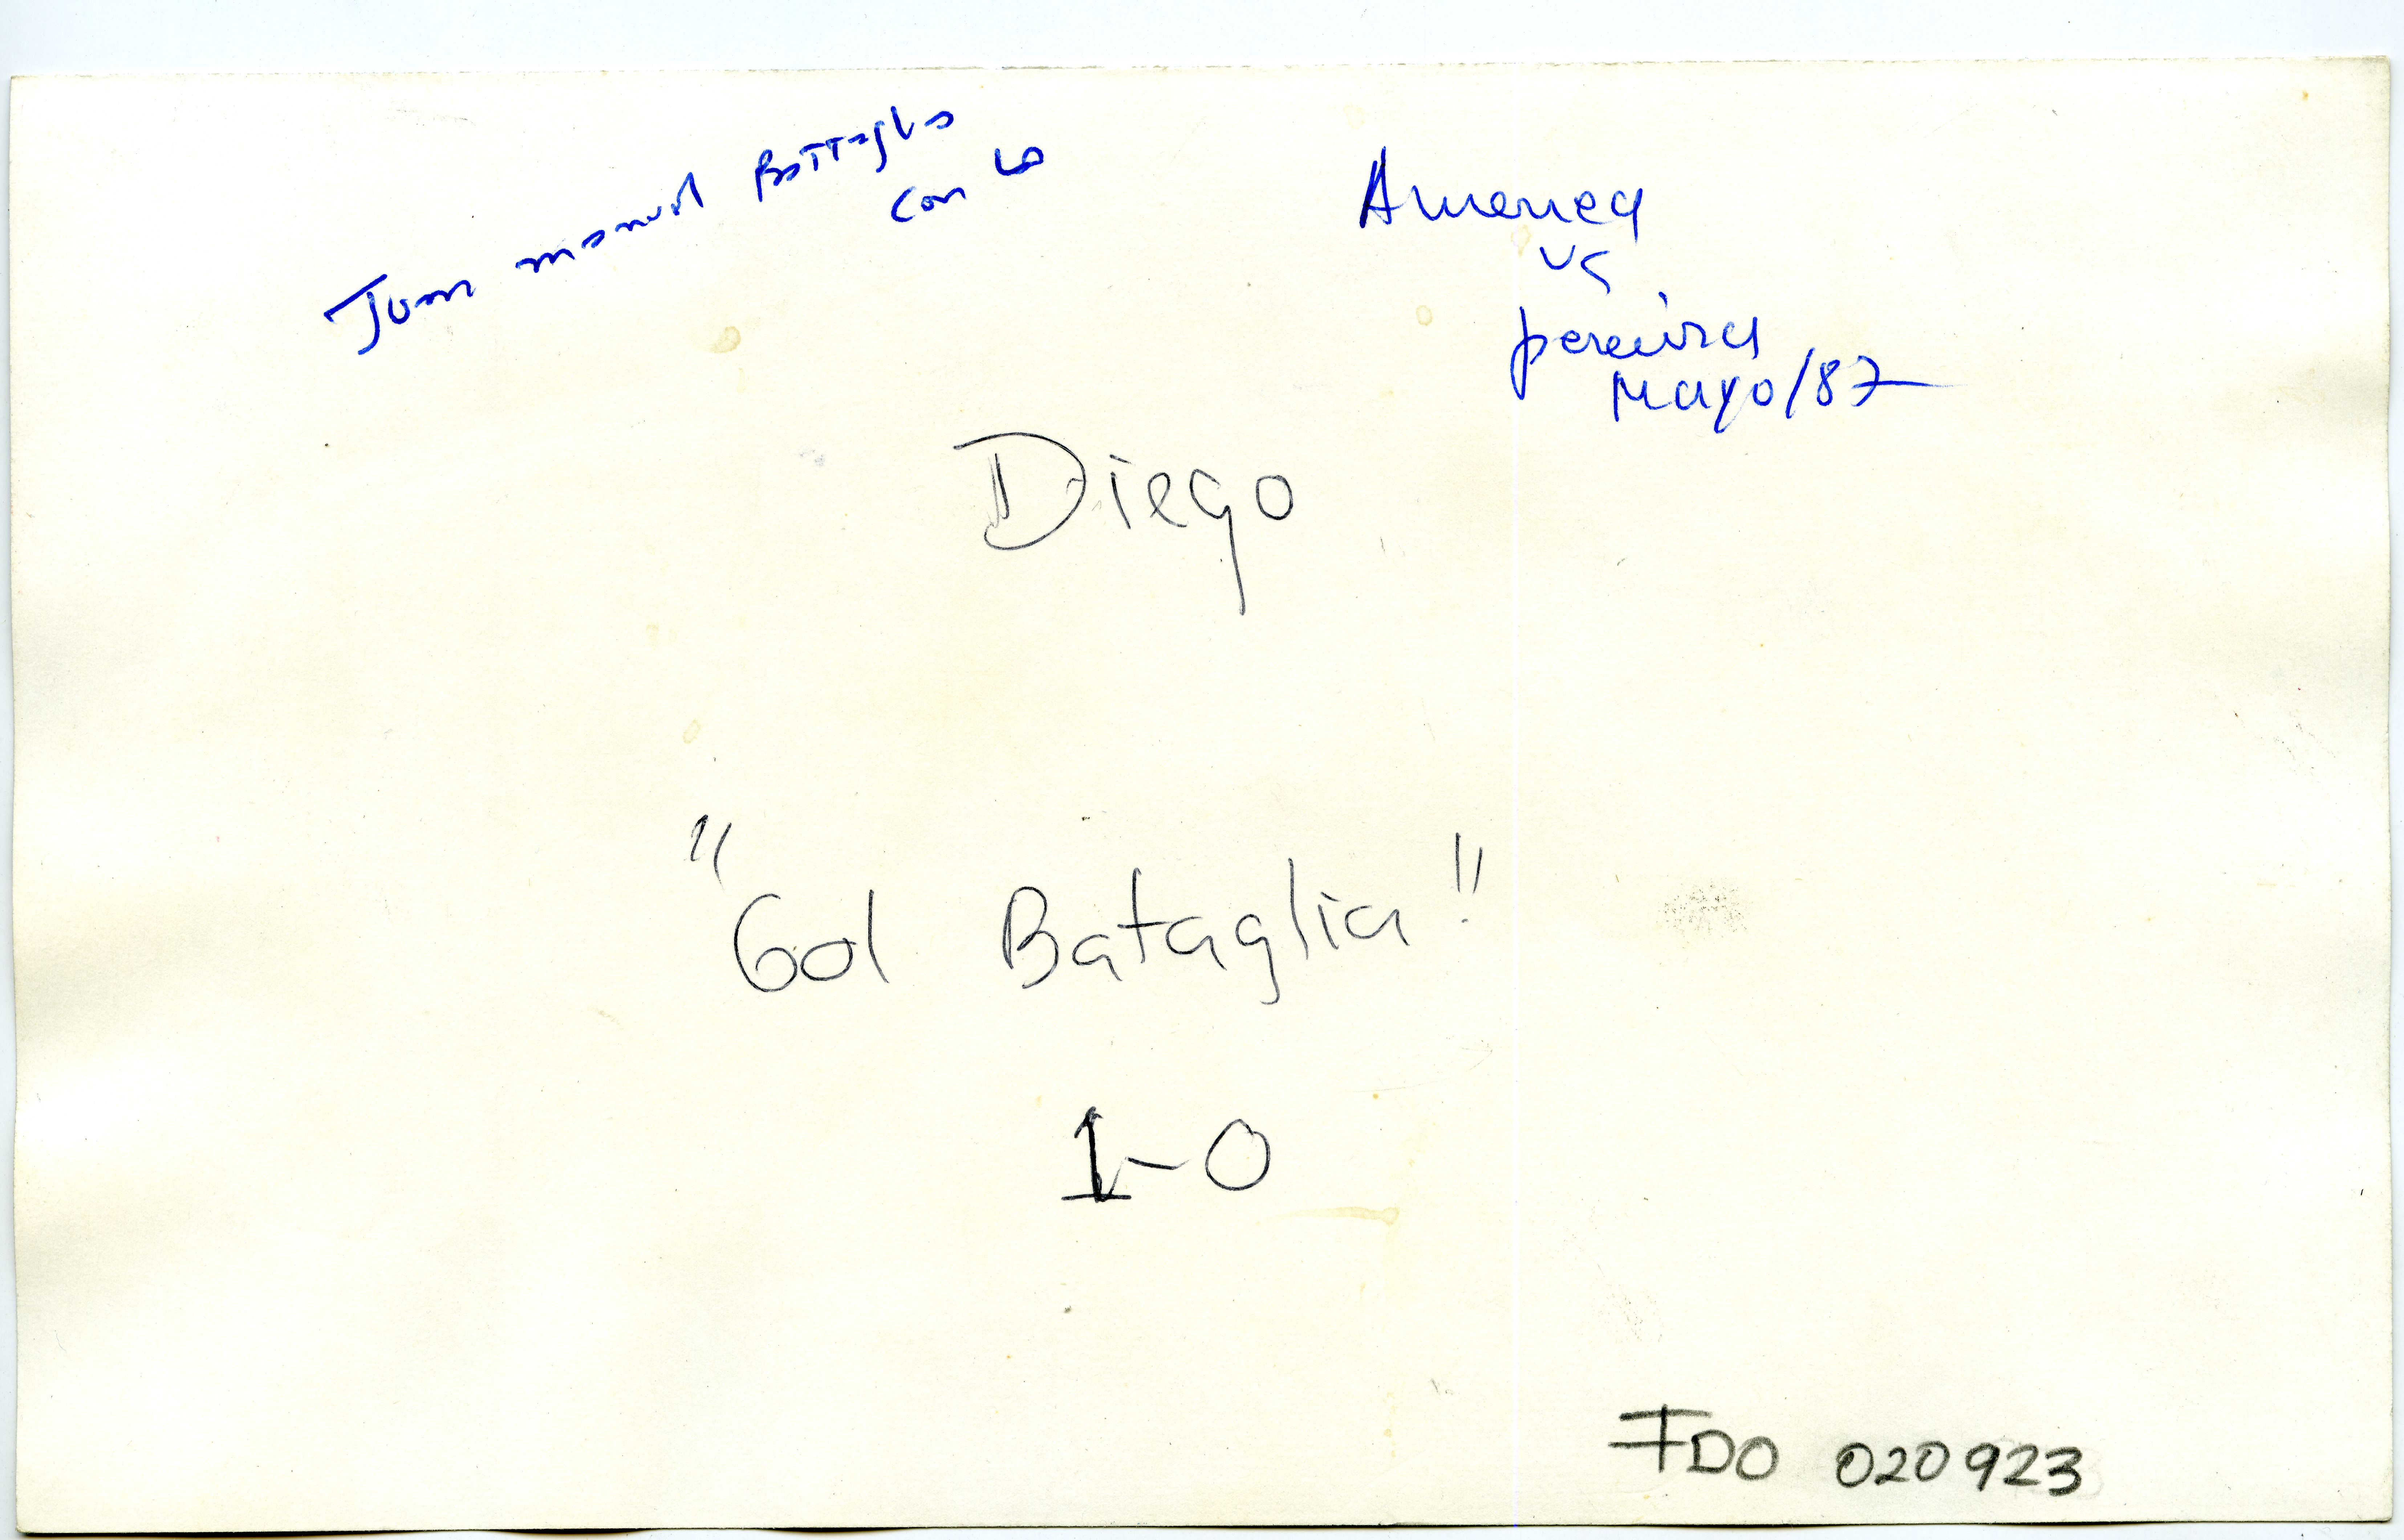 Juan manuel Battaglia
con la
America
vs
pereira
Mayo/87
Diego
"Gol Bataglia"
1-0
FDO 020923